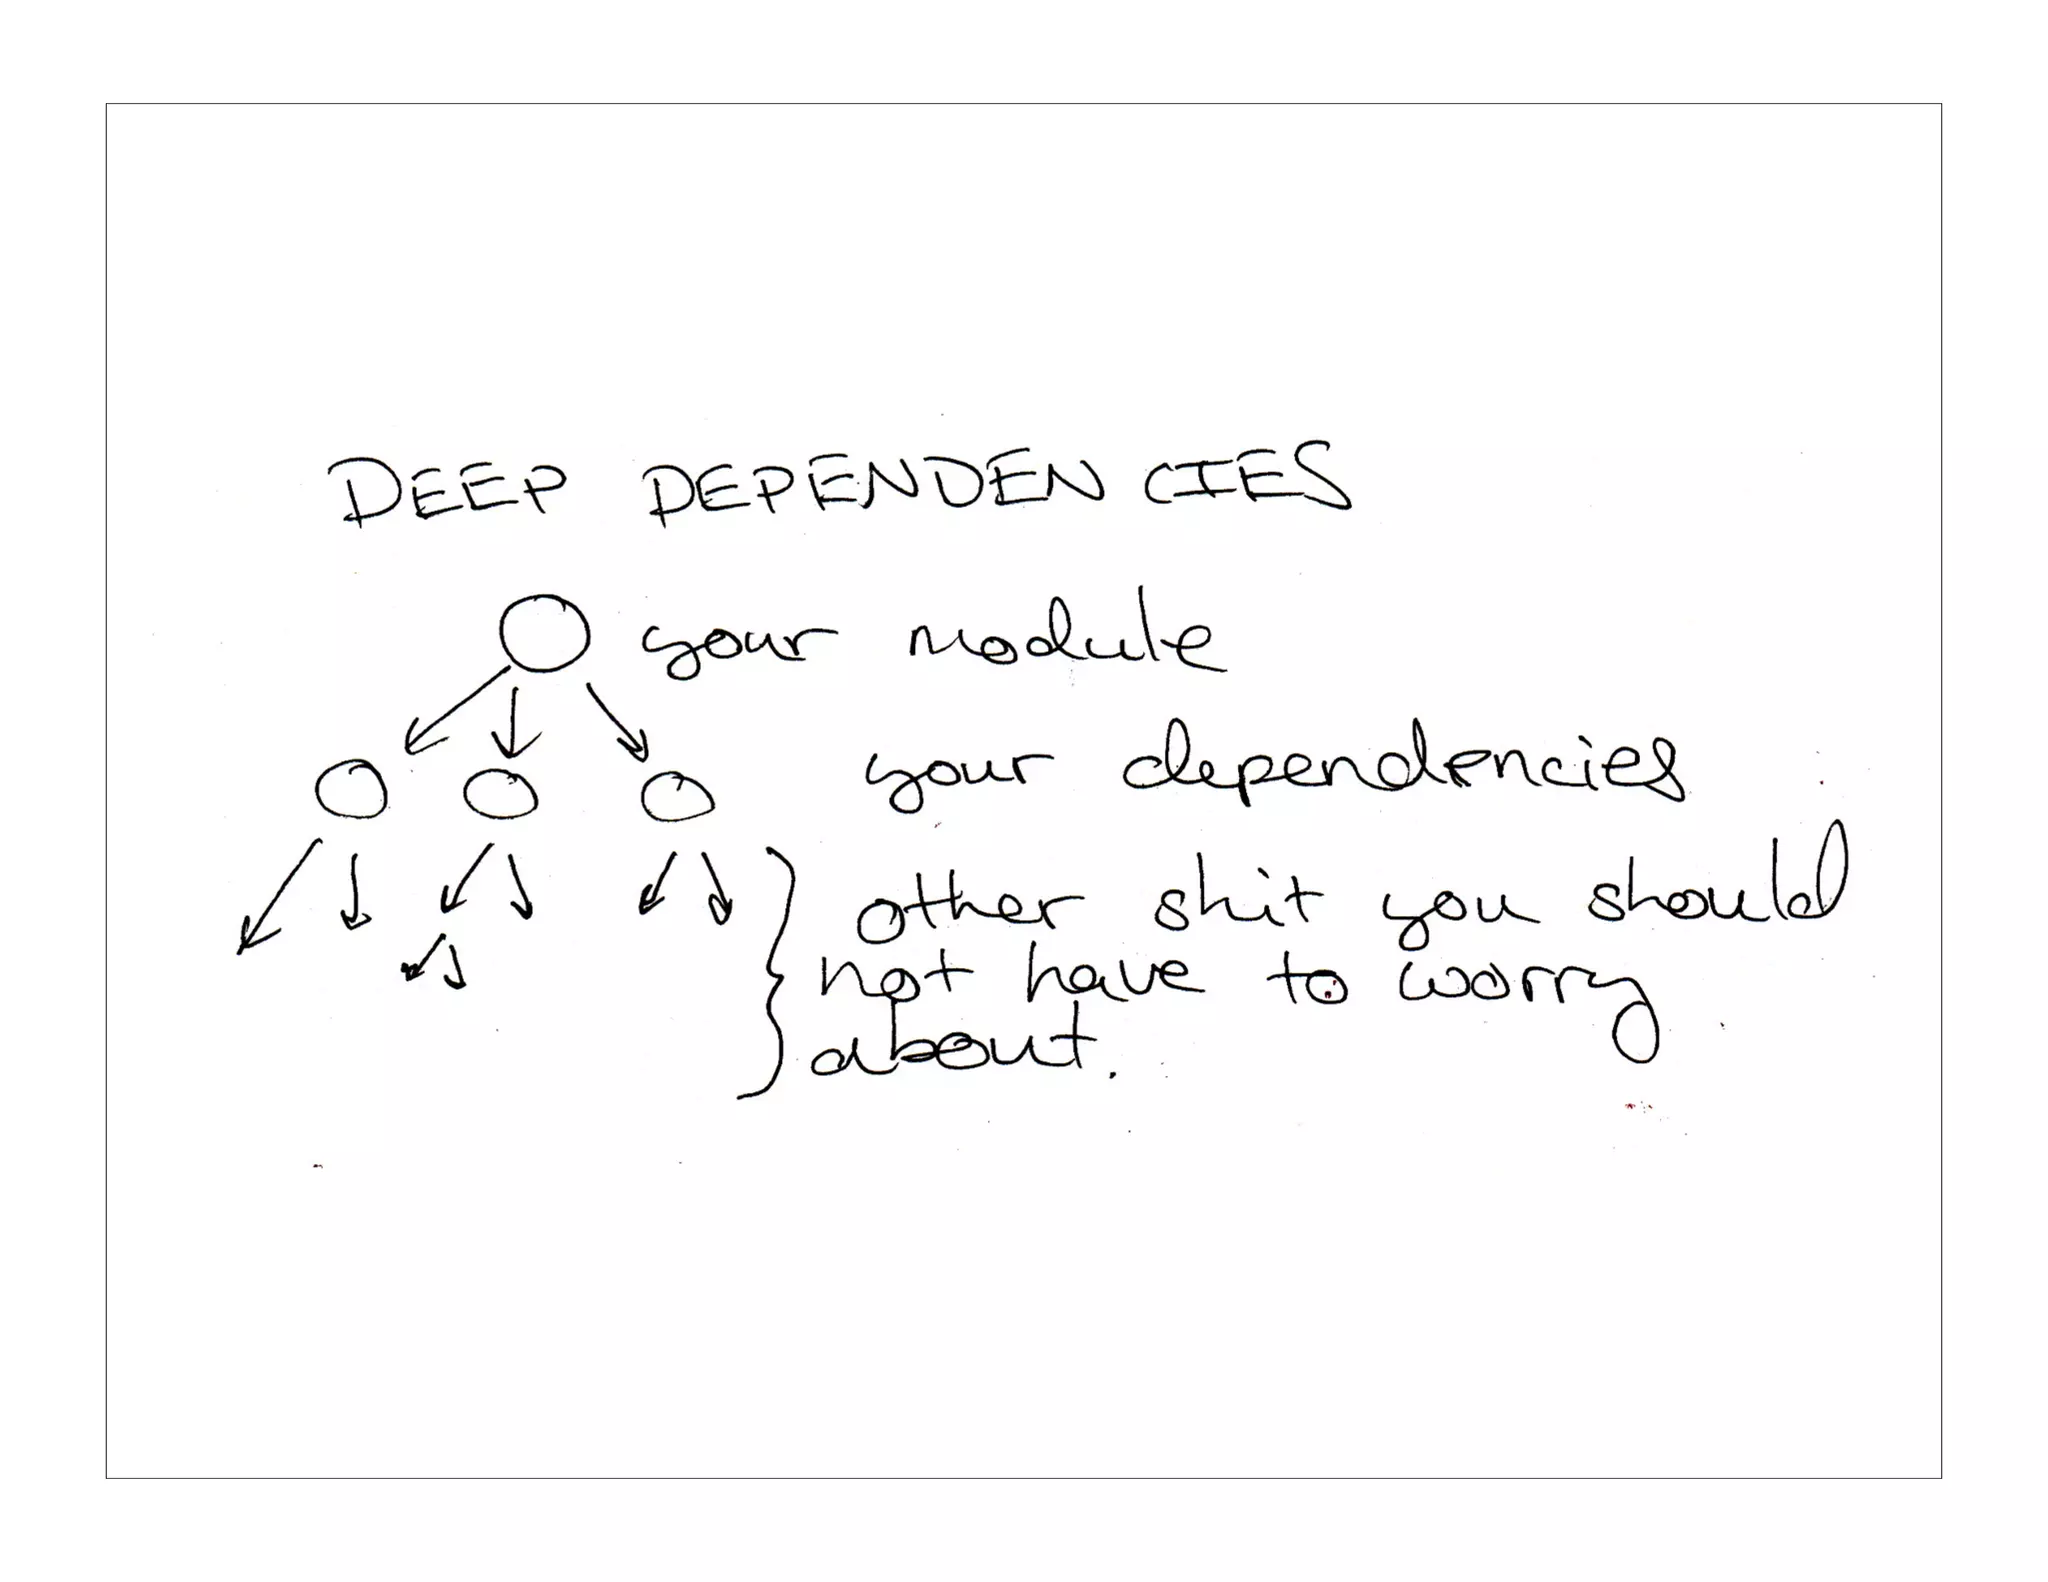 DEEP DEPENDENCIES
your module
your dependencies
other shit you should
not have to worry
about.